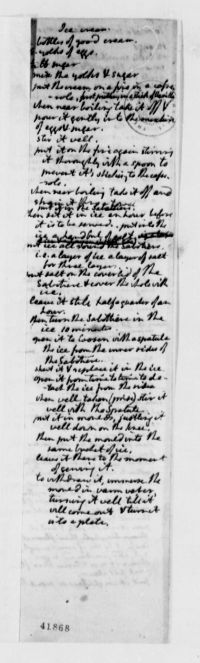 Ice cream.
2. bottles of good cream.
6. yolks of eggs.
1/2 lb sugar
mix the yolks & sugar
put the cream on a fire in a casserole, first putting in a stick of Vanilla.
when near boiling take it off &
pour it gently into the mixture
of eggs & sugar.
stir it well.
put it on the fire again stirring
it thoroughly with a spoon to
prevent it's sticking to the casserole.
when near boiling take it off and
strain it thro' a towel.
put it in the Sabottiere
then set it in ice an hour before
it is to be served. put into the
ice a handful of salt.
put salt on the coverlid of the
Sabotiere & cover the whole with
ice.
leave it still half a quarter of an
hour.
then turn the Sabottiere in the
ice 10 minutes
open it to loosen with a spatula
the ice from the inner sides of
the Sabotiere.
shut it & replace it in the ice
open it from time to time to detach the ice from the sides
when well taken (prise) stir it
well with the Spatula.
put it in moulds, justling it
well down on the knee.
then put the mould into the
same bucket of ice.
leave it there to the moment
of serving it.
to withdraw it, immerse the
mould in warm water,
turning it well till it
will come out & turn it
into a plate.
41868